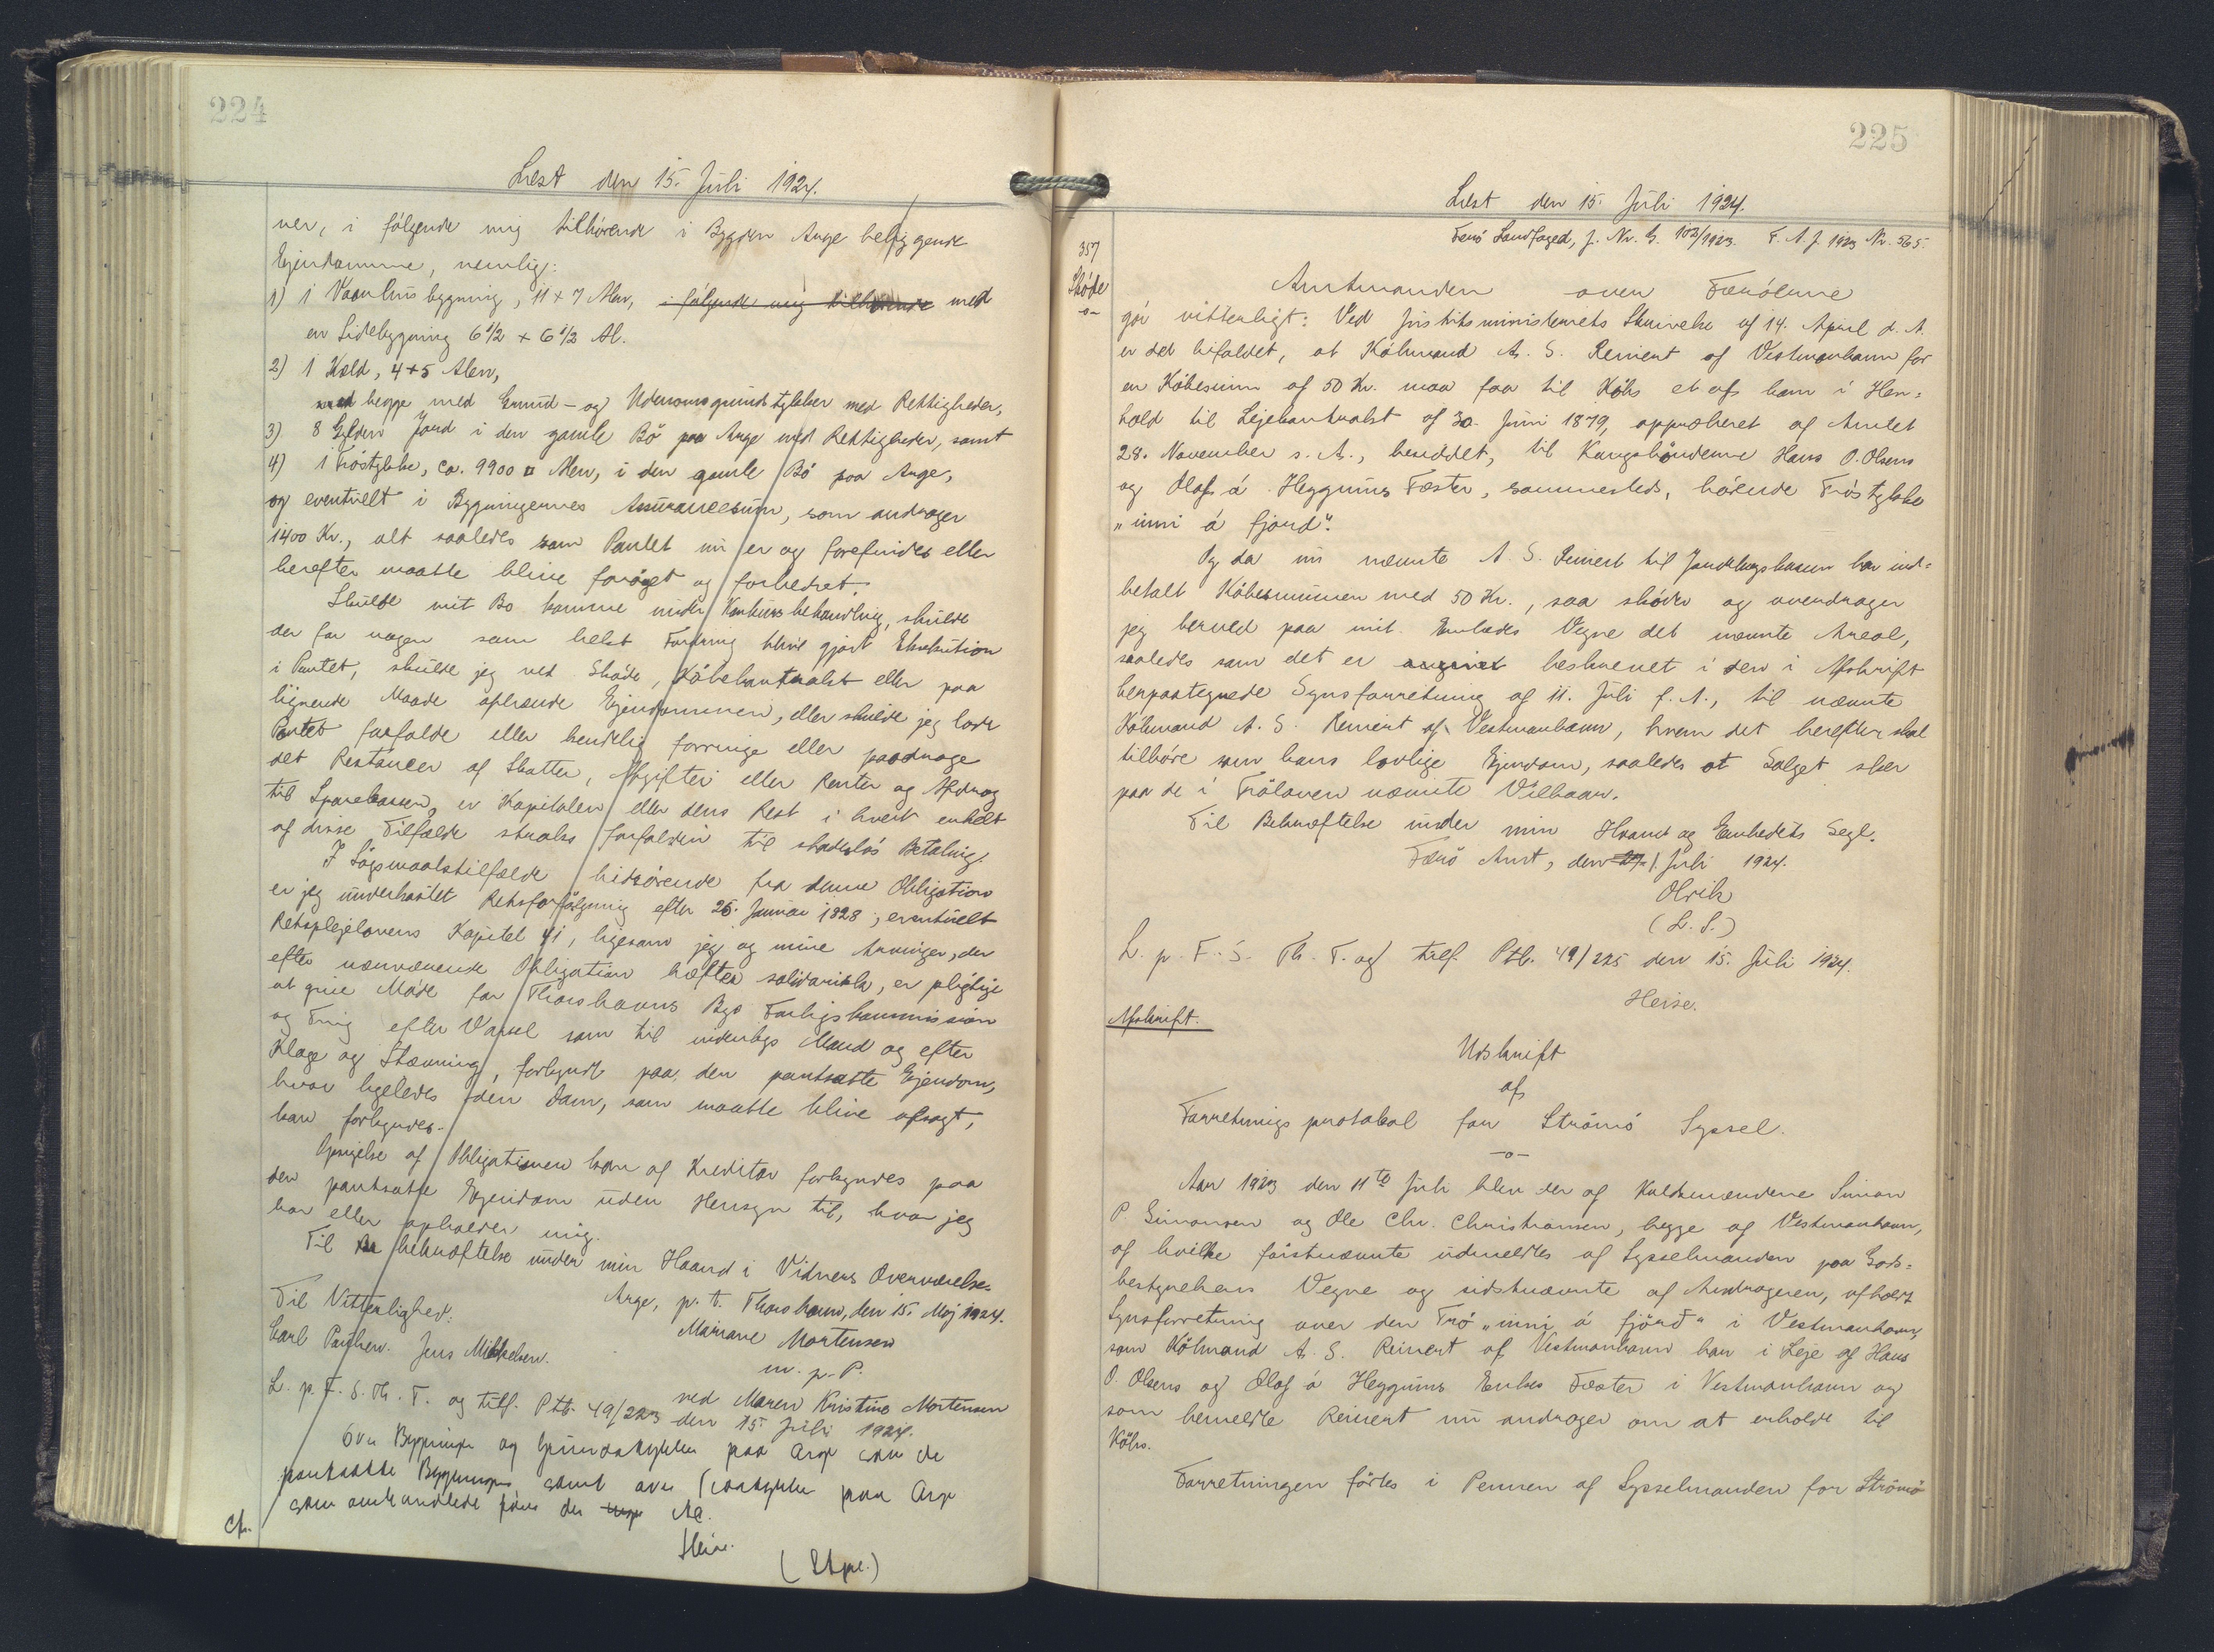 224
Læst den 15. Juli 1924.
ver, i følgende mig tilhørende i Bygden Arge beliggende
Ejendomme, nemlig:
1) 1 Vaanhusbygning, 11 + 7 Alen, i følgende mig tilhørende med
en Sidebygning 6 1/2 + 6 1/2 Al.
2) 1 Kæld, 4 + 5 Alen,
med begge med Grund- og Udenomsgrundstykker med Rettigheder,
3) 8 Gylden Jord i den gamle Bø paa Arge med Rettigheder, samt
4) 1 Trøstykke, ca. 9900 □ Alen, i den gamle Bø paa Arge,
og eventuelt i Bygningernes Assurancesum, som andrager
1400 Kr., alt saaledes som Pantet nu er og forefindes eller
herefter maatte blive forøget og forbedret.
Skulde mit Bo komme under Konkursbehandling, skulde
der for nogen som helst Fordring blive gjort Eksekution
i Pantet, skulde jeg ved Skøde, Købekontrakt eller paa
lignende Maade afhænde Ejendommen, eller skulde jeg lade
Pantet forfalde eller kendelig forringe eller paadrage
det Restancer af Skatter, Afgifter eller Renter og Afdrag
til Sparekassen, er Kapitalen eller dens Rest i hvert enkelt
af disse Tilfælde straks forfalden til skadesløs Betaling.
I Søgsmaalstilfælde hidrørende fra denne Obligation
er jeg underkastet Retsforfølgning efter 25. Januar 1828, eventuelt
Retsplejelovens Kapitel 41, ligesom jeg og mine Arvinger, der
efter nærværende Obligation hæfter solidarisk, er pligtige
at give Møde for Thorshavns Bys Forligskommission
og Ting efter Varsel som til indenbys Mand og efter
Klage og Stævning, forkyndt paa den pantsatte Ejendom,
hvor ligeledes den Dom, som maatte blive afsagt,
kan forkyndes.
Opsigelse af Obligationen kan af Kreditor forkyndes paa
den pantsatte Ejendom uden Hensyn til, hvor jeg
bor eller opholder mig.
Til Be bekræftelse under min Haand i Vidners Overværelse.
Arge, p. t. Thorshavn, den 15. Maj 1924.
Til Vitterlighed:
Mariane Mortensen
Carl Poulsen. Jens Mikkelsen.
m. p. P.
ved Maren Kristine Mortensen
L. p. F. S. Th. T. og tilf. Ptb. 49/223 den 15. Juli 1924.
over Bygninger og Grundstykker paa Arge som de
pantsatte Bygninger samt over Trøstykker paa Arge
som omhandlede
Heise.
357
Skøde
-o-
225
Læst den 15. Juli 1924.
Færø Landfoged, J. Nr. G. 102/1923. F. A. J. 1923 Nr. 565.
Amtmanden over Færøerne
gør vitterligt: Ved Justitsministeriets Skrivelse af 14. April d. A.
er det bifaldet, at Købmand A. S. Reinert af Vestmanhavn for
en Købesum af 50 Kr. maa faa til Købs et af ham i Hen=
hold til Lejekontrakt af 30. Juni 1879, approberet af Amtet
28. November s. A., benyttet, til Kongsbønderne Hans O. Olsens
og Olaf á Heygums Fæster, sammesteds, hørende Trøstykke
"inni á fjørð".
Og da nu nævnte A. S. Reinert til Jordebogskassen har ind=
betalt Købesummen med 50 Kr., saa skøder og overdrager
jeg herved paa mit Embedes Vegne det nævnte Areal,
saaledes som det er angivet beskrevet i den i Afskrift
herpaategnede Synsforretning af 11. Juli f. A., til nævnte
Købmand A. S. Reinert af Vestmanhavn, hvem det herefter skal
tilhøre som hans lovlige Ejendom, saaledes at Salget sker
paa de i Trøloven nævnte Vilkaar.
Til Bekræftelse under min Haand og Embedets Segl.
Færø Amt, den 1. Juli 1924.
Olrik
(L. S.)
L. p. F. S. Th. T. og tilf. Ptb. 49/225 den 15. Juli 1924.
Heise.
Afskrift.
Udskrift
af
Forretningsprotokol for Strømø Syssel.
-o-
Aar 1923 den 11te Juli blev der af Kaldsmændene Simon
P. Simonsen og Ole Chr. Christiansen, begge af Vestmanhavn,
af hvilke førstnævnte udmeldtes af Sysselmanden paa Gods=
bestyrelsens Vegne og sidstnævnte af Andrageren, afholdt
Synsforretning over den Trø "inni á fjørð" i Vestmanhavn,
som Købmand A. S. Reinert af Vestmanhavn har i Leje af Hans
O. Olsens og Olaf á Heygums Enkes Fæster i Vestmanhavn og
som bemeldte Reinert nu andrager om at erholde til
Købs.
Forretningen førtes i Pennen af Sysselmanden for Strømø